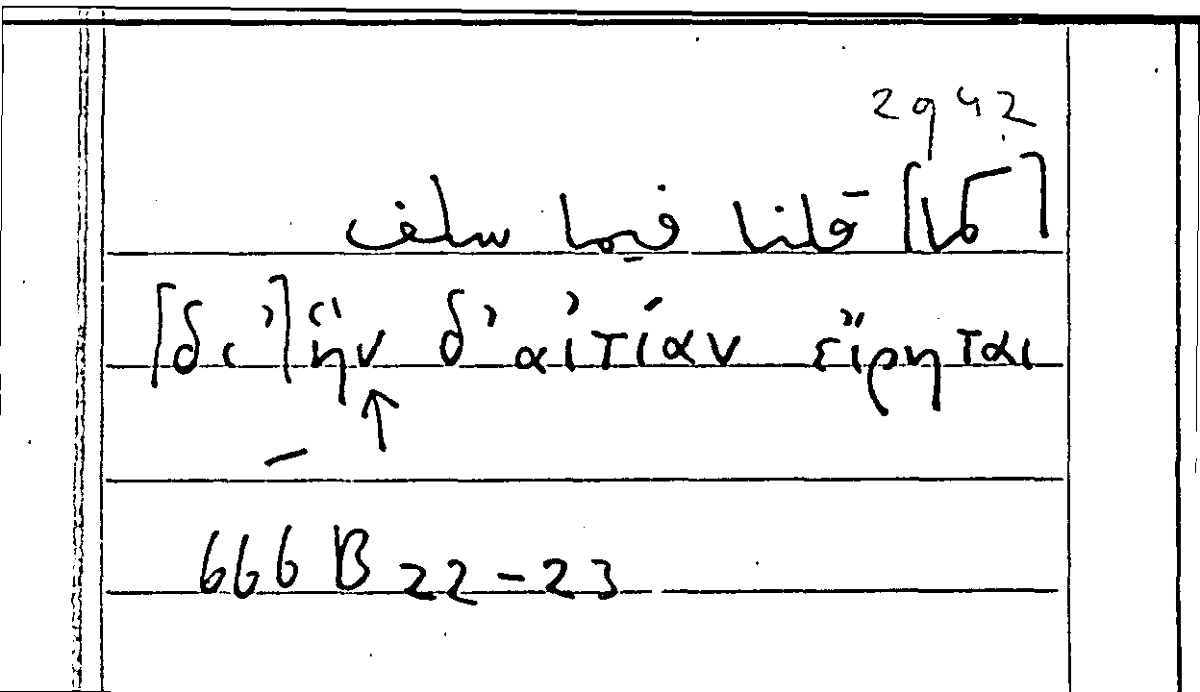 2942
[كما] قلنا فيما سلف
[δι᾽] ἣν δ᾽ αἰτίαν εἴρηται
666 B 22-23